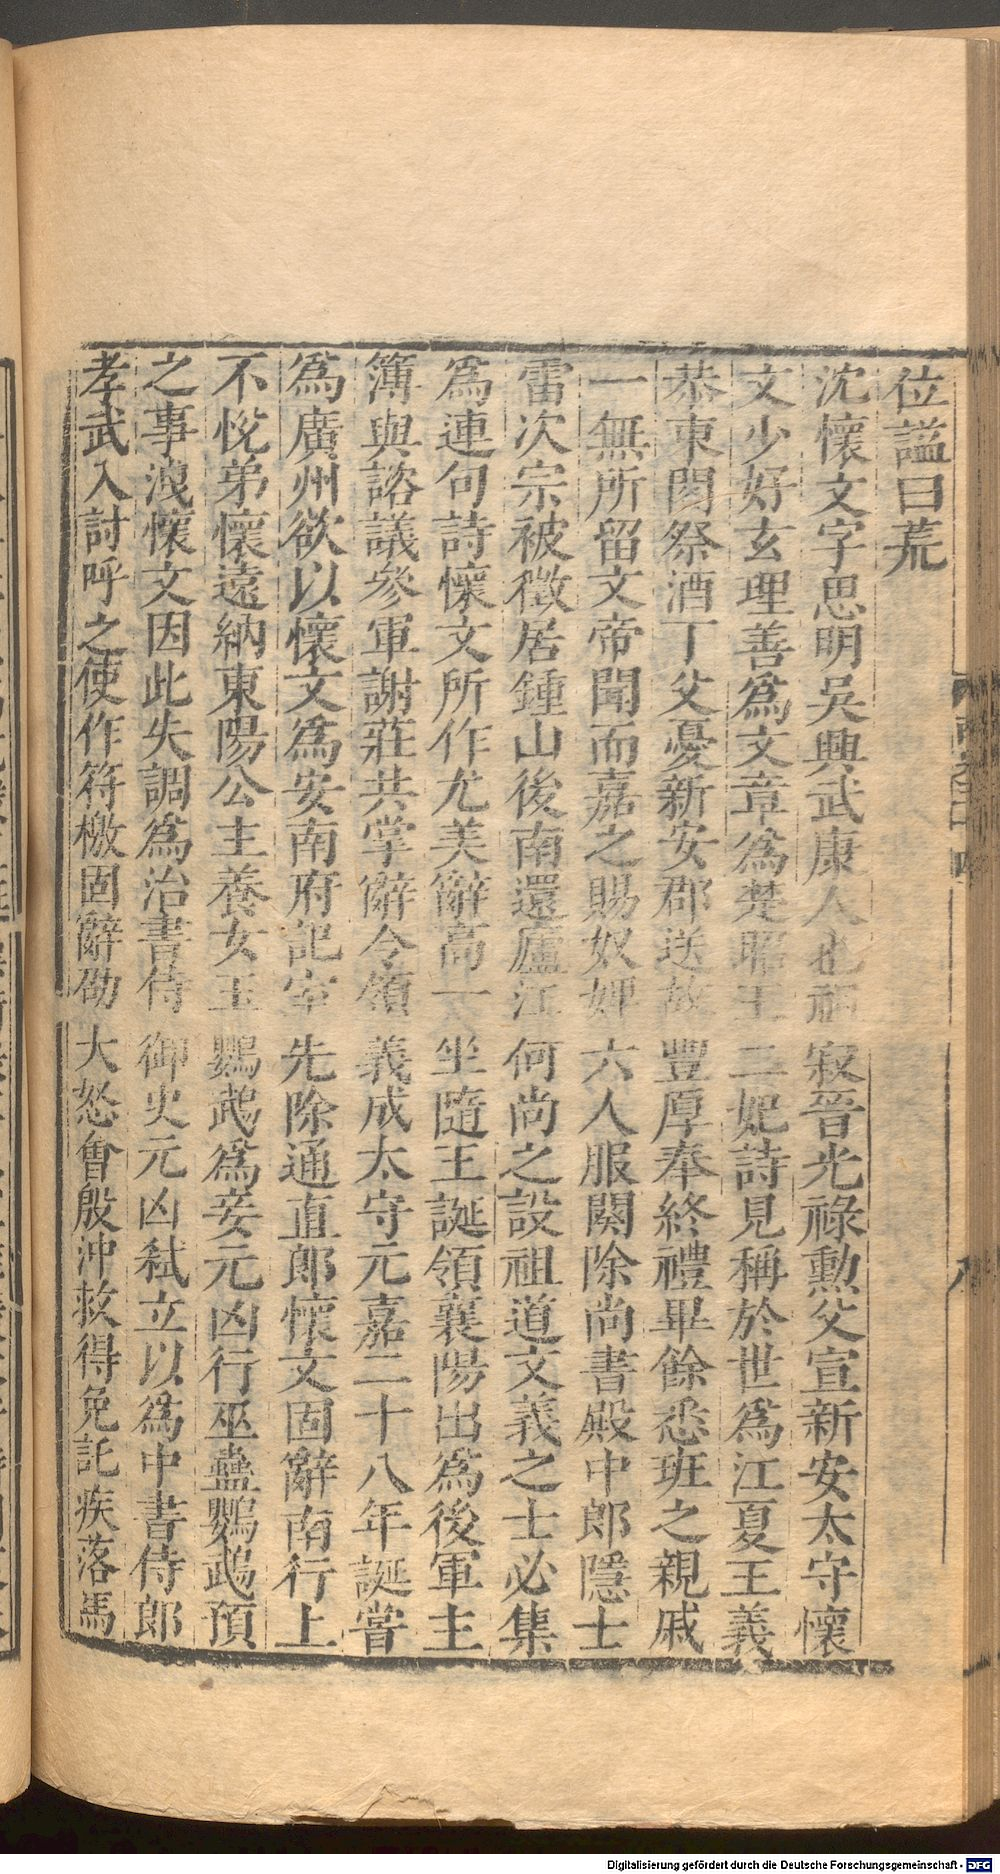 位謚曰荒
沈懷文字思明吳興武康人也祖寂晉光祿勲父宣新安太守懷
文少好玄理善爲文章爲楚昭王二妃詩見稱於世爲江夏王義
恭東閤祭酒丁父憂新安郡送故豐厚奉終禮畢餘悉班之親戚
一無所留文帝聞而嘉之賜奴婢六人服闋除尚書殿中郎隱士
雷次宗被徵居鍾山後南還廬江何尚之設祖道文義之士必集
爲連句詩懷文所作尤美辭高一坐隨王誕領襄陽出爲後軍主
簿與諮議參軍謝莊共掌辭令領義成太守元嘉二十八年誕當
爲廣州欲以懷文爲安南府記室先除通直郎懷文固辭南行上
不悅弟懷遠納東陽公主養女王鸚鵡爲妾元凶行巫蠱鸚鵡預
之事洩懷文因此失調爲治書侍御史元凶弒立以爲中書侍郎
孝武入討呼之使作符檄固辭劭大怒會殷沖救得免託疾落馬
Digitalisierung gefördert durch die Deutsche Forschungsgemeinschaft - DFG